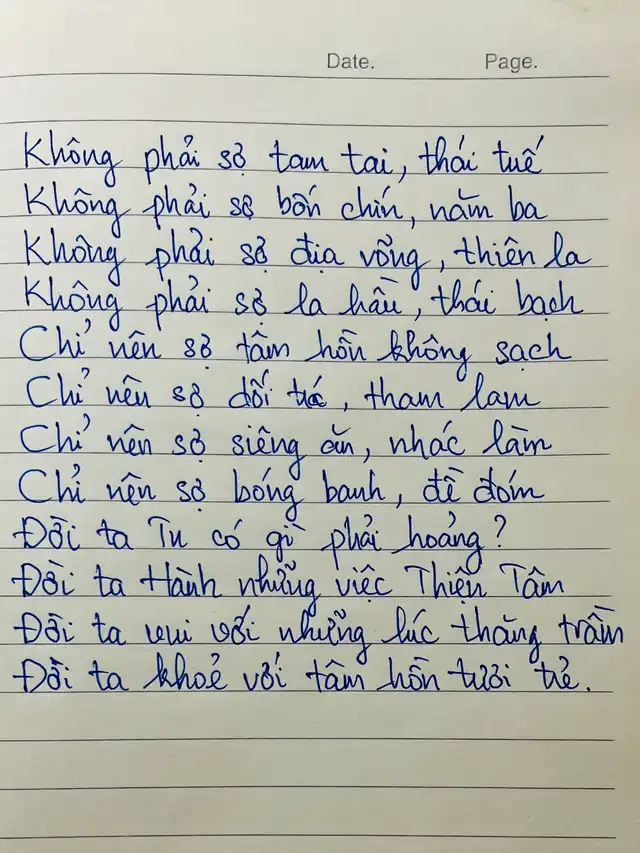 Date. Page.
Không phải sợ tam tai, thái tuế
Không phải sợ bốn chín, năm ba
Không phải sợ địa võng, thiên la
Không phải sợ la hầu, thái bạch
Chỉ nên sợ tâm hồn không sạch
Chỉ nên sợ dối trá, tham lam
Chỉ nên sợ siêng ăn, nhác làm
Chỉ nên sợ bóng banh, đề đóm
Đời ta Tu có gì phải hoảng?
Đời ta Hành những việc Thiện Tâm
Đời ta vui với những lúc thăng trầm
Đời ta khoẻ với tâm hồn tươi trẻ.